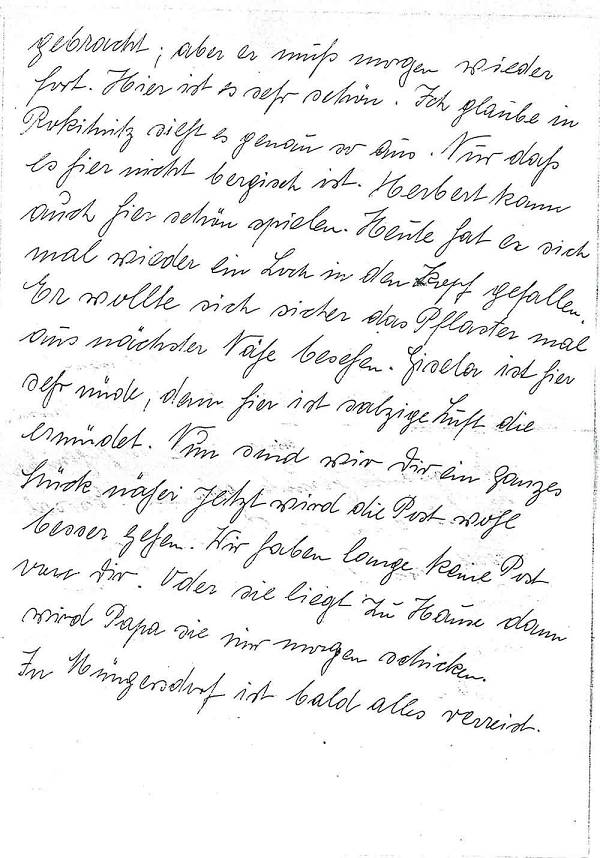 gebracht; aber er muß morgen wieder
fort. Hier ist es sehr schön. Ich glaube in
Rokitnitz sieht es genau so aus. Nur daß
es hier nicht bergisch ist. Herbert kann
auch hier schön spielen. Heute hat er sich
mal wieder ein Loch in den Kopf gefallen.
Er wollte sich sicher das Pflaster mal
aus nächster Nähe besehen. Gisela ist hier
sehr müde, denn hier ist salzige Luft die
ermüdet. Nun sind wir Dir ein ganzes
Stück näher jetzt wird die Post wohl
besser gehen. Wir haben lange keine Post
von Dir. Oder sie liegt zu Hause dann
wird Papa sie mir morgen schicken.
In Müngersdorf ist bald alles verreist.